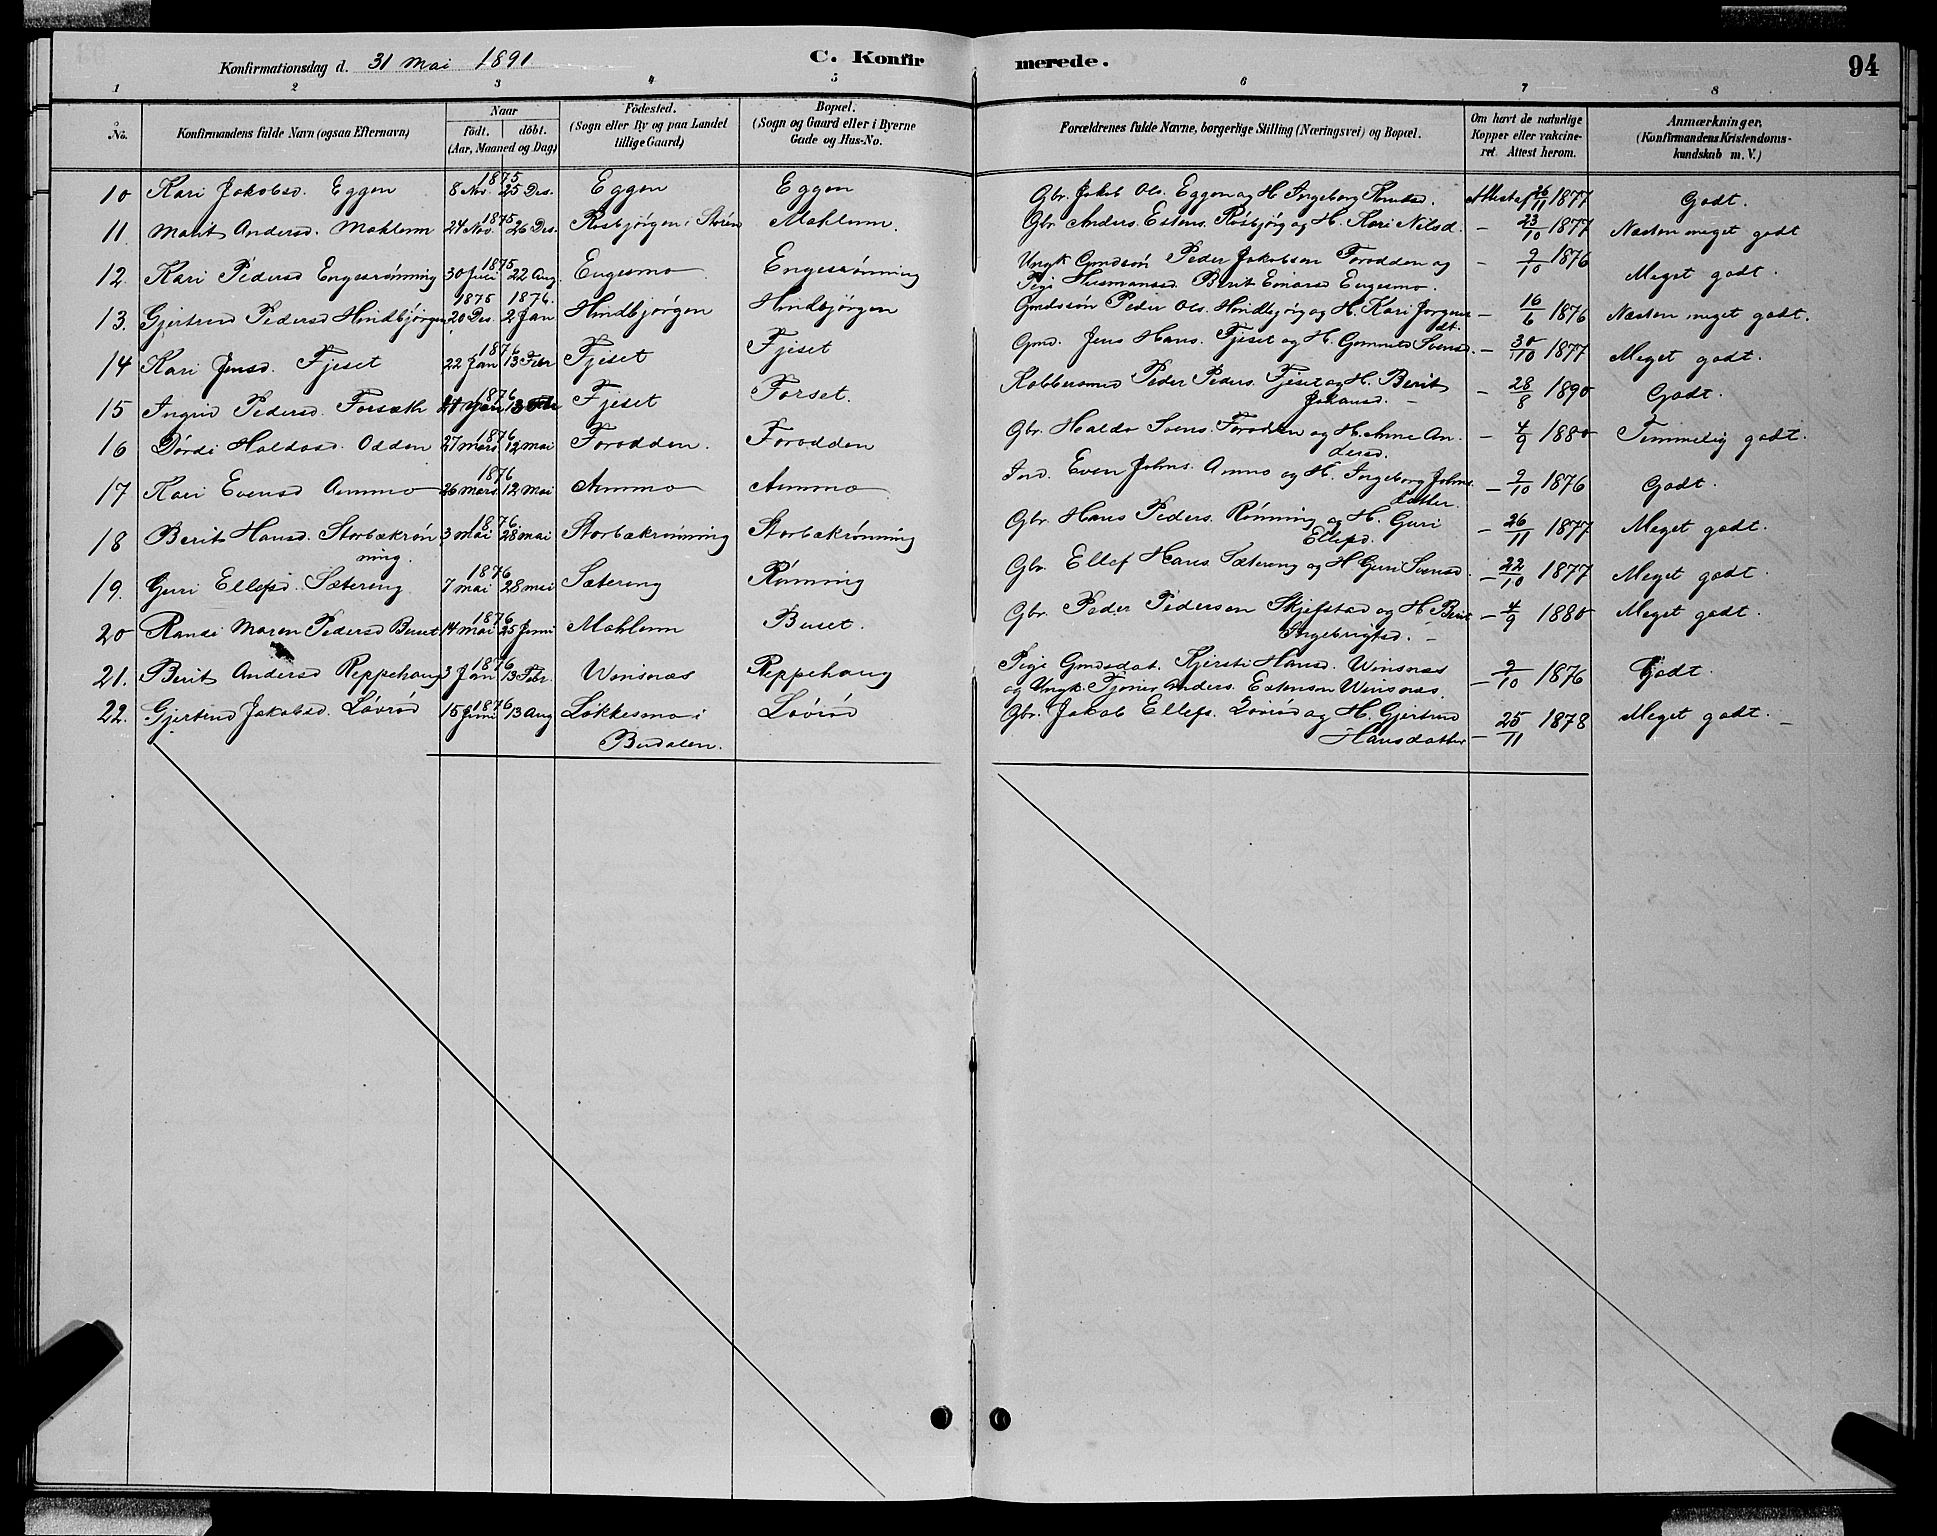 Konfirmationsdag d. 31 Mai 1891 C. Konfirmerede. 94
1 2 3 4 5 6 7 8
No. Konfirmandens fulde Navn (ogsaa Efternavn) Naar født. døbt. (Aar, Maaned og Dag) Fødested. (Sogn eller By og paa Landet tillige Gaard) Bopæl. (Sogn og Gaard eller i Byerne Gade og Hus-No. Forældrenes fulde Navne, borgerlige Stilling (Næringsvei) og Bopæl. Om havt de naturlige Kopper eller vakcineret. Attest herom. Anmærkninger, (Konfirmandens Kristendomskundskab m. V.)
10 Kari Jakobsd. Eggen 1875 8 Nov. 25 Des. Eggen Eggen Gbr. Jakob Ols. Eggen og H. Ingeborg Knudsd. Attest af 26/11 1877 Godt.
11. Marit Andersd. Mohlenn 1875 24 Nov. 26 Des. Rosbjørgen i Støren Mohlenn. Gbr. Anders Estens. Rosbjørg og H. Kari Nilsd. – 23/10 1877 Næsten meget godt
12. Kari Pedersd Engesrønning 1875 30 Juli 22 Aug. Engesmo Engesrønning Ungk. Gmdssøn Peder Jakobsen Forodden og
Pige Husmandsd. Berit Einarsd Engesmo. – 9/10 1876 Meget godt.
13. Gjertrud Pedersd Hindbjørgen 1875 20 Des. 1876. 2 Jan Hindbjørgen Hindbjørgen Gmdssøn Peder Ols. Hindbjørg og H. Kari Jørgens
dt. – 16/6 1876 Næsten meget godt.
14 Kari Jensd. Fjeset 1876 22 Jan 13 Febr Fjeset Fjeset Gmd. Jens Hans. Fjeset og H. Gunnild Svensd. – 30/10 1877 Meget godt.
15 Ingrid Pedersd. Forseth 1876 Fjeset Forset. Kobbersmed Peder Peders. Fjeset og H. Berit
Johansd. – – 28/8 1890 Godt.
16 Dórdi Haldosd. Odden 1876 27 Mars 12 Mai Forodden. Forodden Gbr. Haldo Svens. Forodden og H. Anne An-
dersd. – 4/9 1880 Temmelig godt.
17 Kari Evensd Ammo 1876 26 Mars 12 Mai Ammo Ammo. Ind. Even Johns. Ammo og H. Ingeborg Johns
datter. – 9/10 1876 Godt.
18 Berit Hansd. Storbækrøn
ning. 1876 3 Mai 28 Mai Storbækrønning Storbækrønning Gbr. Hans Peders. Rønning og H. Guri
Ellefsd. – 26/11 1877 Meget godt.
19. Guri Ellefsd. Sætereng 1876 7 Mai 28 Mai Sætereng Rønning Gbr. Ellef Hans Sætereng og H Guri Svensd. – 22/10 1877 Meget godt.
20 Randi Maren Pedersd Buset 1876 14 Mai 25 Juni Mohlenn Buset. Gbr. Peder Pedersen Skjefstad og H. Berit
Ingebrigtsd. – – 4/9 1880 Meget godt.
21. Berit Andersd Reppehaug 1876 3 Jan 13 Febr. Winsnæs Reppehaug Pige Gmdsdat. Kjersti Hansd. Winsnæs
og Ungk. Anders Estensen Winsnæs. – 9/10 1876 Godt.
22. Gjertrud Jakobsd. Løvrød 1876 15 Juni 13 Aug Løkkesmo i
Budalen. Løvrød Gbr. Jakob Ellefs. Løvrød og H. Gjertrud
Hansdatter – 25/11 1878 Meget godt. –